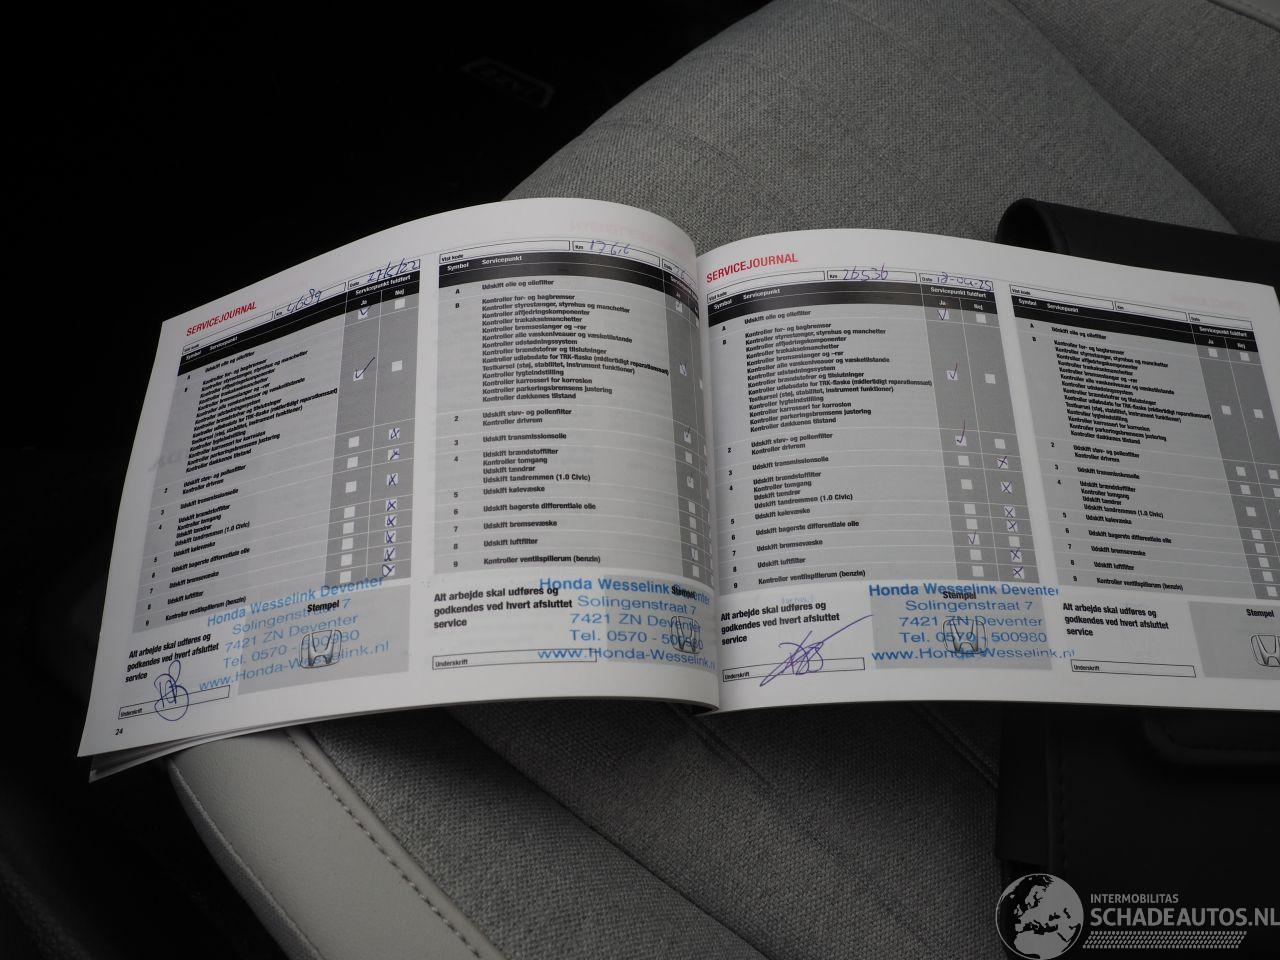 SERVICEJOURNAL
Km 4689
Dato 27/5/22
Symbol Servicepunkt
Servicepunkt fuldført
Ja Nej
A Udskift olie og oliefilter
B Kontroller for- og bagbremser
Kontroller styrestænger, styrehus og manchetter
Kontroller affjedringskomponenter
Kontroller trækakselmanchetter
Kontroller bremseslanger og -rør
Kontroller alle væskeniveauer og væsketilstande
Kontroller udstødningssystem
Kontroller brændstofrør og tilslutninger
Kontroller udløbsdato for TRK-flaske (midlertidigt reparationssæt)
Testkørsel (støj, stabilitet, instrument funktioner)
Kontroller lygteindstilling
Kontroller karrosseri for korrosion
Kontroller parkeringsbremsens justering
Kontroller dækkenes tilstand
2 Udskift støv- og pollenfilter
Kontroller drivrem
3 Udskift transmissionolie
4 Udskift brændstoffilter
Kontroller tomgang
Udskift tændrør
Udskift tandremmen (1.0 Civic)
5 Udskift kølevæske
6 Udskift bagerste differentiale olie
7 Udskift bremsevæske
8 Udskift luftfilter
9 Kontroller ventilspillerum (benzin)
Alt arbejde skal udføres og
godkendes ved hvert afsluttet
service
Underskrift
Stempel
Honda Wesselink Deventer
Solingenstraat 7
7421 ZN Deventer
Tel. 0570 - 500980
www.Honda-Wesselink.nl
24
Vist kode
Km
Dato
Symbol Servicepunkt
A Udskift olie og oliefilter
B Kontroller for- og bagbremser
Kontroller styrestænger, styrehus og manchetter
Kontroller affjedringskomponenter
Kontroller trækakselmanchetter
Kontroller bremseslanger og -rør
Kontroller alle væskeniveauer og væsketilstande
Kontroller udstødningssystem
Kontroller brændstofrør og tilslutninger
Kontroller udløbsdato for TRK-flaske (midlertidigt reparationssæt)
Testkørsel (støj, stabilitet, instrument funktioner)
Kontroller lygteindstilling
Kontroller karrosseri for korrosion
Kontroller parkeringsbremsens justering
Kontroller dækkenes tilstand
2 Udskift støv- og pollenfilter
Kontroller drivrem
3 Udskift transmissionolie
4 Udskift brændstoffilter
Kontroller tomgang
Udskift tændrør
Udskift tandremmen (1.0 Civic)
5 Udskift kølevæske
6 Udskift bagerste differentiale olie
7 Udskift bremsevæske
8 Udskift luftfilter
9 Kontroller ventilspillerum (benzin)
Alt arbejde skal udføres og
godkendes ved hvert afsluttet
service
Underskrift
Stempel
Honda Wesselink Deventer
Solingenstraat 7
7421 ZN Deventer
Tel. 0570 - 500980
www.Honda-Wesselink.nl
SERVICEJOURNAL
Vist kode
Km 26536
Dato 18-04-25
Symbol Servicepunkt
Servicepunkt fuldført
Ja Nej
A Udskift olie og oliefilter
B Kontroller for- og bagbremser
Kontroller styrestænger, styrehus og manchetter
Kontroller affjedringskomponenter
Kontroller trækakselmanchetter
Kontroller bremseslanger og -rør
Kontroller alle væskeniveauer og væsketilstande
Kontroller udstødningssystem
Kontroller brændstofrør og tilslutninger
Kontroller udløbsdato for TRK-flaske (midlertidigt reparationssæt)
Testkørsel (støj, stabilitet, instrument funktioner)
Kontroller lygteindstilling
Kontroller karrosseri for korrosion
Kontroller parkeringsbremsens justering
Kontroller dækkenes tilstand
2 Udskift støv- og pollenfilter
Kontroller drivrem
3 Udskift transmissionolie
4 Udskift brændstoffilter
Kontroller tomgang
Udskift tændrør
Udskift tandremmen (1.0 Civic)
5 Udskift kølevæske
6 Udskift bagerste differentiale olie
7 Udskift bremsevæske
8 Udskift luftfilter
9 Kontroller ventilspillerum (benzin)
Alt arbejde skal udføres og
godkendes ved hvert afsluttet
service
Underskrift
Stempel
Honda Wesselink Deventer
Solingenstraat 7
7421 ZN Deventer
Tel. 0570 - 500980
www.Honda-Wesselink.nl
Vist kode
Km
Dato
Symbol Servicepunkt
Servicepunkt fuldført
Ja Nej
A Udskift olie og oliefilter
B Kontroller for- og bagbremser
Kontroller styrestænger, styrehus og manchetter
Kontroller affjedringskomponenter
Kontroller trækakselmanchetter
Kontroller bremseslanger og -rør
Kontroller alle væskeniveauer og væsketilstande
Kontroller udstødningssystem
Kontroller brændstofrør og tilslutninger
Kontroller udløbsdato for TRK-flaske (midlertidigt reparationssæt)
Testkørsel (støj, stabilitet, instrument funktioner)
Kontroller lygteindstilling
Kontroller karrosseri for korrosion
Kontroller parkeringsbremsens justering
Kontroller dækkenes tilstand
2 Udskift støv- og pollenfilter
Kontroller drivrem
3 Udskift transmissionolie
4 Udskift brændstoffilter
Kontroller tomgang
Udskift tændrør
Udskift tandremmen (1.0 Civic)
5 Udskift kølevæske
6 Udskift bagerste differentiale olie
7 Udskift bremsevæske
8 Udskift luftfilter
9 Kontroller ventilspillerum (benzin)
Alt arbejde skal udføres og
godkendes ved hvert afsluttet
service
Underskrift
Stempel
INTERMOBILITAS
SCHADEAUTOS.NL